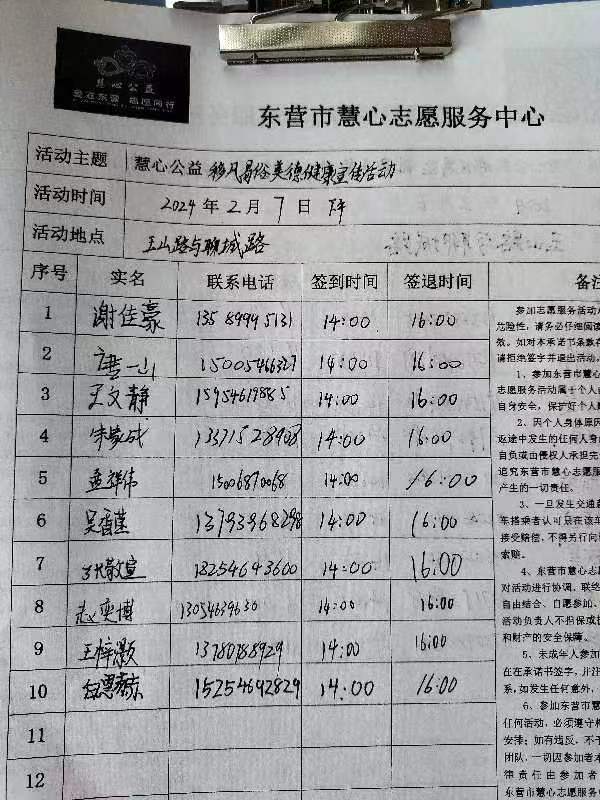 慧心公益
爱在东营 志愿同行
东营市慧心志愿服务中心
活动主题 慧心公益 移风易俗美德健康宣传活动
活动时间 2024年2月7日
活动地点 玉山路与聊城路
序号 实名 联系电话 签到时间 签退时间 备注
1 谢佳豪 13589995131 14:00 16:00
2 唐一山 15005466327 14:00 16:00
3 王文静 15954619885 14:00 16:00
4 朱家成 13371528908 14:00 16:00
5 孟祥伟 15006870068 14:00 16:00
6 吴香莲 13793968298 14:00 16:00
7 18254643600 14:00 16:00
8 赵奕博 13054639630 14:00 16:00
9 王梓灏 13780788929 14:00 16:00
10 15254692829 14:00 16:00
11
12
参加志愿服务活动
危险性，请务必仔细阅读
效。如对本承诺书条款存
请拒绝签字并退出活动。
1、参加东营市慧
志愿服务活动属于个人自
自身安全，保护好个人
2、因个人身体原因
返途中发生的任何人身
自负或由侵权人承担完
追究东营市慧心志愿服
产生的一切责任。
3、一旦发生交通
车搭乘者认可只在该车
接受赔偿，不得另行向
索赔。
4、东营市慧心志愿
对活动进行协调、联络
自由结合、自愿参加、
活动负责人不担保或
和财产的安全保障。
5、未成年人参加
在在承诺书签字，并注
系，如发生任何意外，
6、参加东营市慧
任何活动，必须遵守
安排；如有违反、不
团队，一切因参加者本
律责任由参加者
东营市慧心志愿服务中